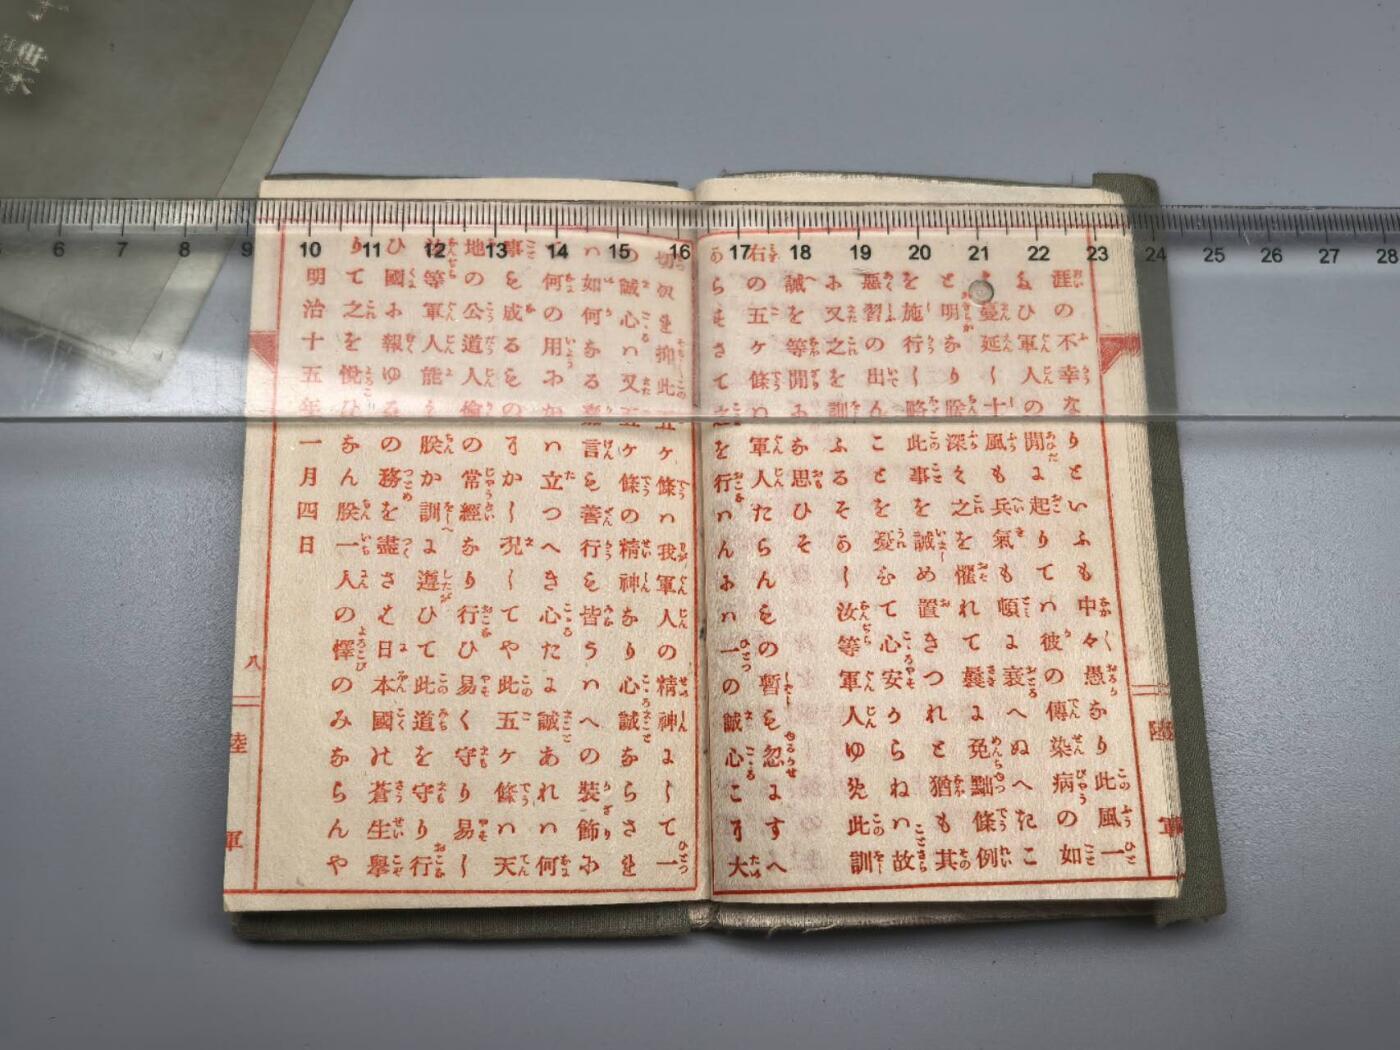 涯の不幸なりといふも中々愚なり此風一
たひ軍人の間に起りてハ彼の傳染病の如
く蔓延し士風も兵氣も頓に衰へぬへきこ
と明なり朕深く之を懼れて曩に免黜條例
を施行し略此事を誡め置きつれと猶も其
惡習の出んことを憂ひて心安からねハ故
に又之を訓ふるそかし汝等軍人ゆめ此訓
誡を等閒にな思ひそ
右の五ヶ條ハ軍人たらんもの暫も忽にすへ
からすさて之を行ハんにハ一の誠心こそ大
切なれ抑此五ヶ條ハ我軍人の精神にして一
の誠心ハ又五ヶ條の精神なり心誠ならされ
ハ如何なる嘉言も善行も皆うハへの裝飾に
て何の用にかハ立つへき心たに誠あれハ何
事も成るものそかし况してや此五ヶ條ハ天
地の公道人倫の常經なり行ひ易く守り易し
汝等軍人能く朕か訓に遵ひて此道を守り行
ひ國に報ゆるの務を盡さは日本國の蒼生擧
りて之を悅ひなん朕一人の懌のみならんや
明治十五年一月四日
八
陸軍
6 7 8 9 10 11 12 13 14 15 16 17 18 19 20 21 22 23 24 25 26 27 28